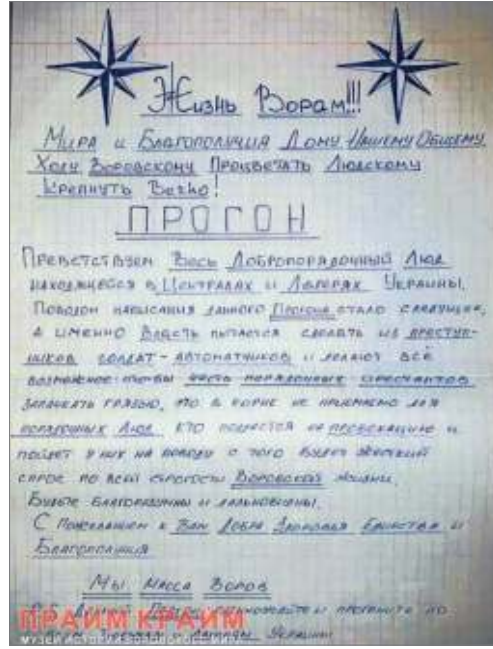 Жизнь Ворам!!!
Мира и Благополучия Дому Нашему Общему,
Ходу Воровскому Процветать Людскому
Крепнуть Вечно!
ПРОГОН
Приветствуем Весь Добропорядочный Люд
находящееся в Централах и Лагерях Украины.
Поводом написания данного Прогона стало следующее,
а именно Власть пытается сделать из преступ-
ников солдат-автоматчиков и делают всё
возможное чтобы честь порядочных арестантов
запачкать грязью, что в корне не приемлемо для
порядочных Люд кто поведется на провокацию и
пойдет у них на поводу с того будет жёсткий
спрос по всей строгости Воровской жизни.
Будьте благоразумны и дальновидны.
С Пожеланием к Вам Добра Здоровья Единства и
Благополучия
Мы Масса Воров
и прогоните по
и Украины
ПРАЙМ КРАЙМ
МУЗЕЙ ИСТОРИИ ВОРОВСКОГО МИРА